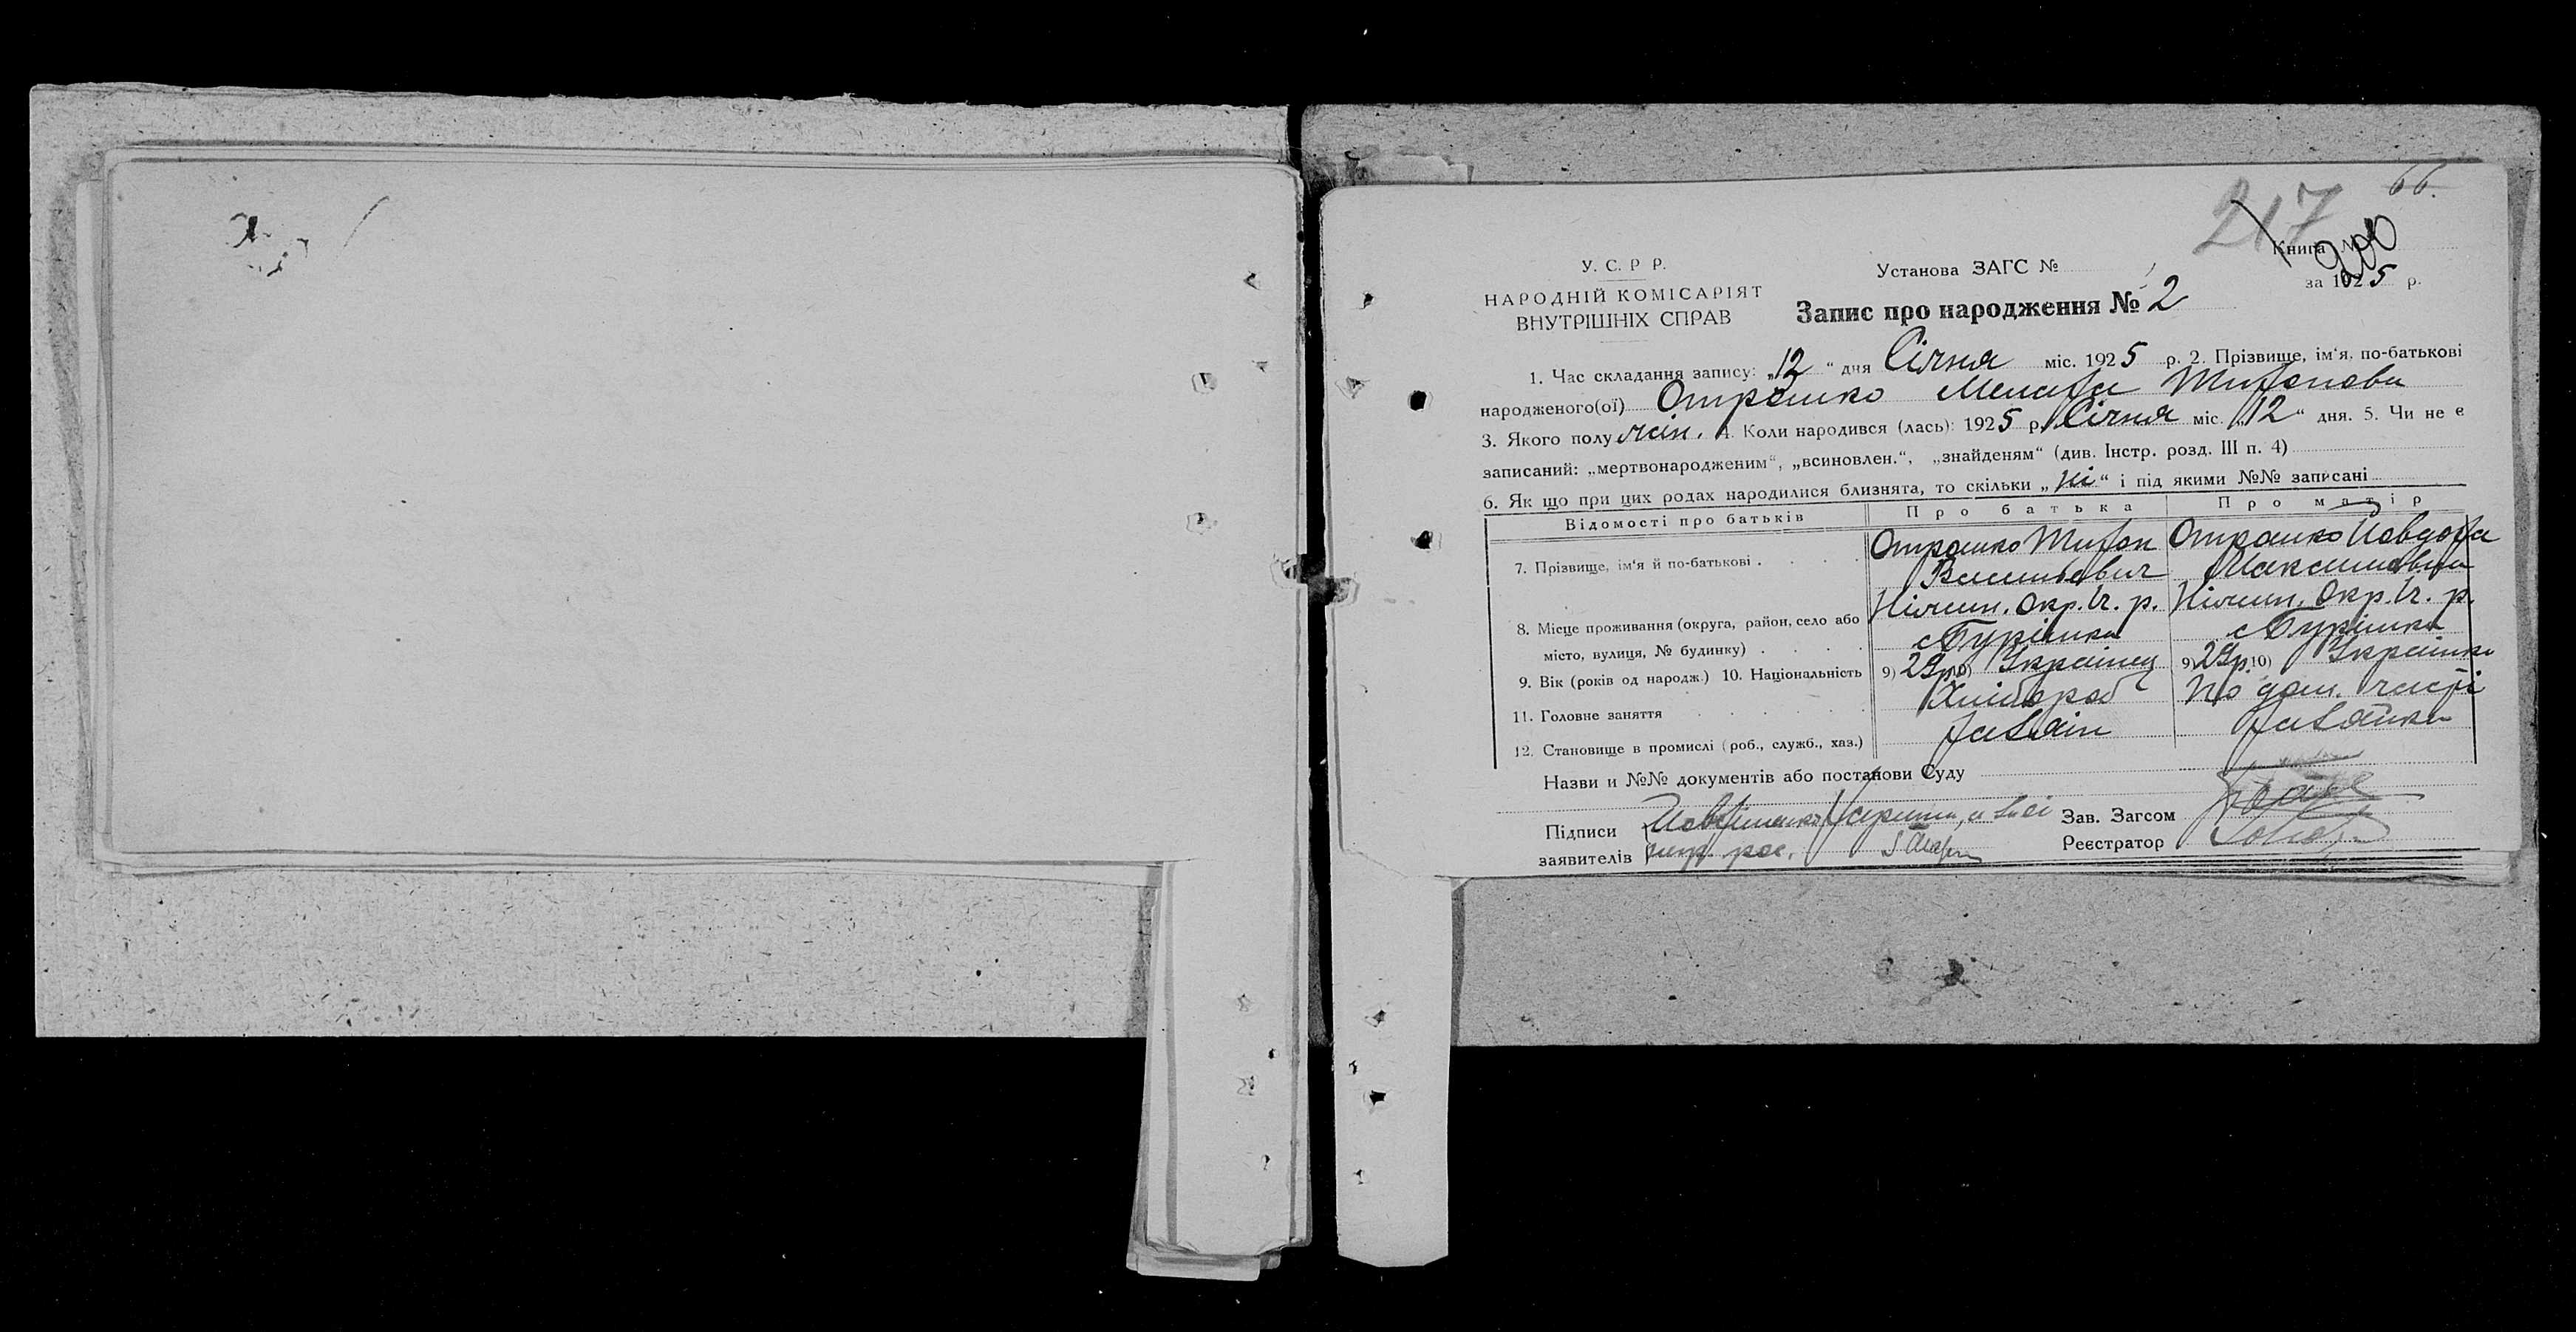 66.
217
Книга №
200
У. С. Р. Р.
Установа ЗАГС №
за 1925 р.
НАРОДНІЙ КОМІСАРІЯТ
ВНУТРІШНІХ СПРАВ
Запис про народження № 2
1. Час складання запису: „12“ дня Січня міс. 1925 р. 2. Прізвище, ім'я, по-батькові
народженого(ої) Отрошко
3. Якого полу жін. 4. Коли народився (лась): 1925 р. Січня міс. „12“ дня. 5. Чи не є
записаний: „мертвонародженим“, „всиновлен.“, „знайденям“ (див. Інстр. розд. III п. 4)
6. Як що при цих родах народилися близнята, то скільки „ні“ і під якими №№ записані
Відомості про батьків Про батька Про матір
7. Прізвище, ім'я й по-батькові Отрошко Отрошко
Васильевич Максимовна
8. Місце проживання (округа, район, село або Ніжин. Окр. Іч. р. Ніжин. Окр. Іч. р.
місто, вулиця, № будинку) с Бурімка с Бурімка
9. Вік (років од народж.) 10. Національність 9) 29р. 10) Українец 9) 29р. 10) Українка
11. Головне заняття Хлібороб По дом. части
12. Становище в промислі (роб., служб., хаз.) Хазяін Хазяйка
Назви и №№ документів або постанови Суду
Підписи Зав. Загсом
заявителів Реєстратор